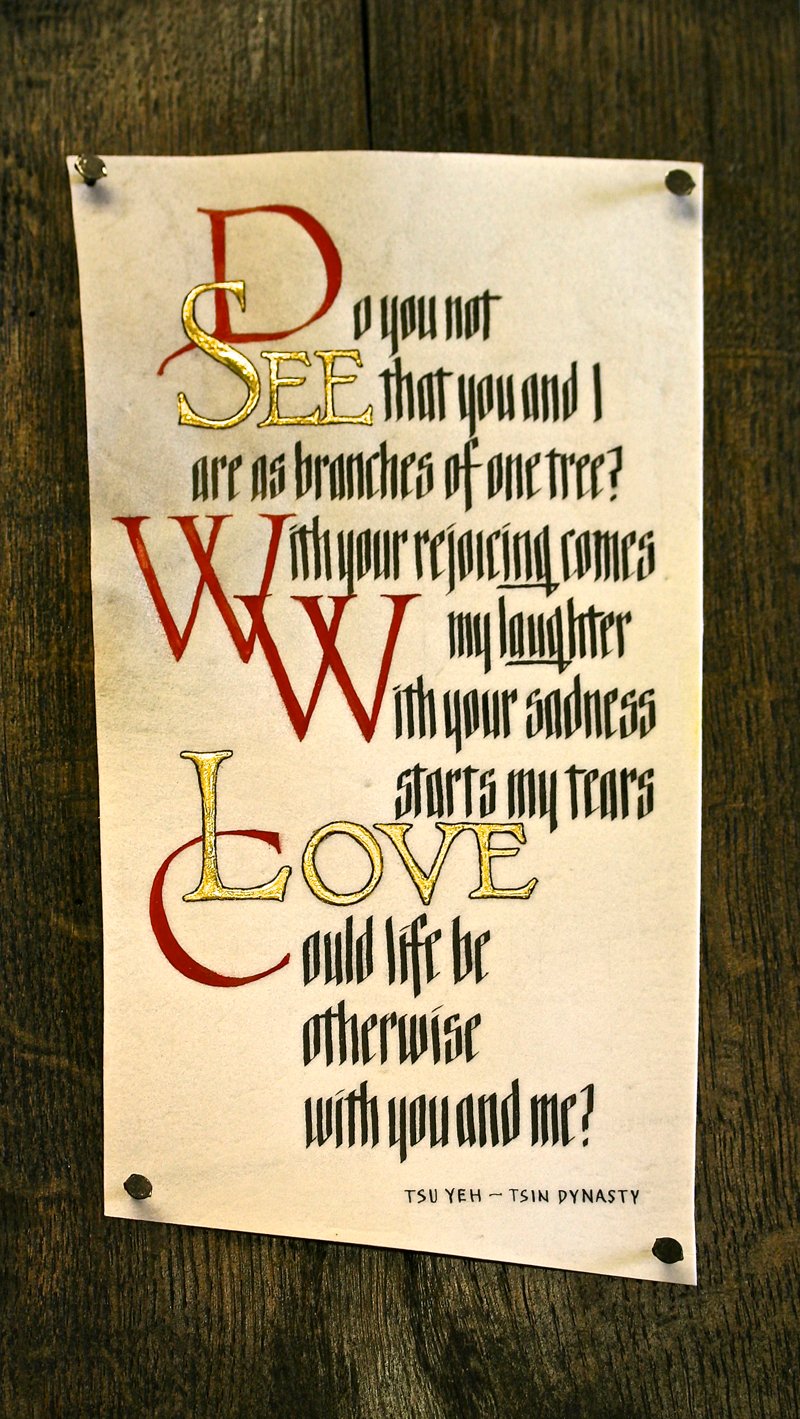 Do you not
SEE that you and I
are as branches of one tree?
With your rejoicing comes
my laughter
With your sadness
starts my tears
LOVE
Could life be
otherwise
with you and me?
TSU YEH ~ TSIN DYNASTY